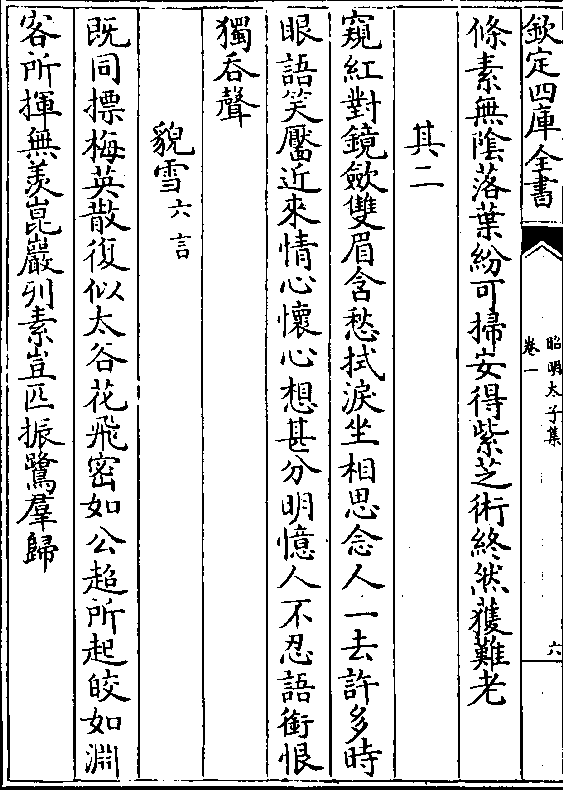 欽定四庫全書
昭明太子集
卷一
六
條素無陰落葉紛可掃安得紫芝術終然獲難老
其二
窺紅對鏡歛雙眉含愁拭淚坐相思念人一去許多時
眼語笑靨近來情心懷心想甚分明憶人不忍語銜恨
獨吞聲
貌雪六言
既同摽梅英散復似太谷花飛密如公超所起皎如淵
客所揮無羡崑巖列素豈匹振鷺羣歸